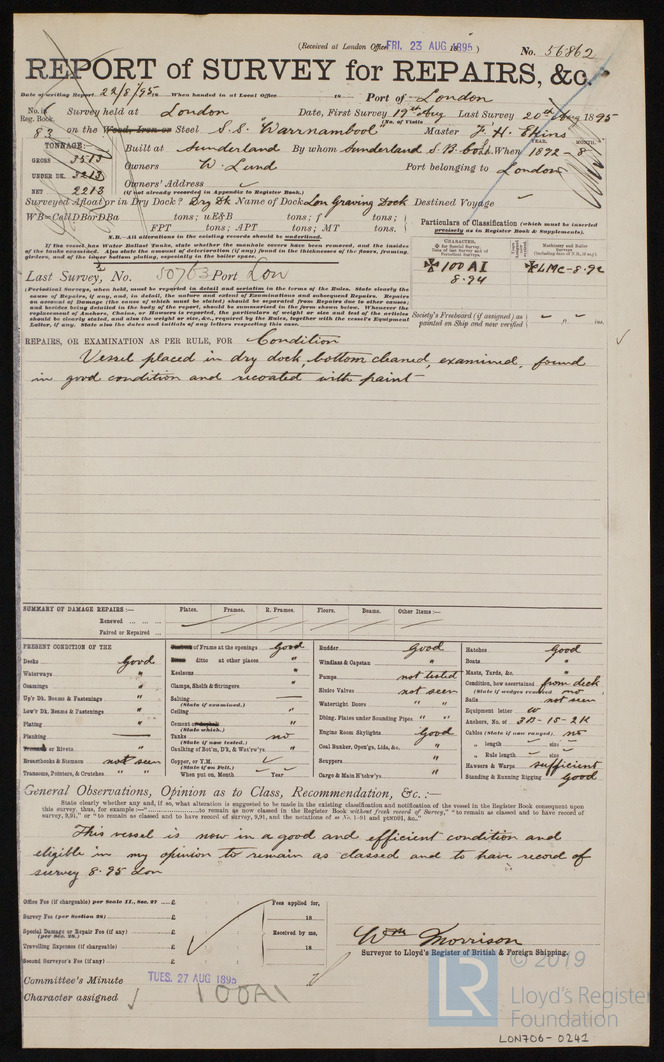 (Received at London Office FRI. 23 AUG 1895 )
No. 56862
REPORT of SURVEY for REPAIRS, &c.
Date of writing Report 22/8/95 When handed in at Local Office 18 Port of London
No. in Reg. Book. Survey held at London Date, First Survey 19th Aug Last Survey 20th Aug 1895
(No. of Visits
83 on the Wood, Iron or Steel S.S. "Warrnambool" Master J. H. Ekins
TONNAGE:— Built at Sunderland By whom Sunderland S.B. Co Ld. When 1892 - 8
YEAR. MONTH.
GROSS 3513 Owners W. Lund Port belonging to London
UNDER DK. 3213 Owners' Address
(if not already recorded in Appendix to Register Book.)
NET 2213
Surveyed Afloat or in Dry Dock? Dry Dk Name of Dock Lon Graving Dock Destined Voyage
WB=CellDBorDBa tons; uE&B tons; f tons;
FPT tons; APT tons; MT tons.
N.B.—All alterations in the existing records should be underlined.
If the vessel has Water Ballast Tanks, state whether the manhole covers have been removed, and the insides
of the tanks examined. Also state the amount of deterioration (if any) found in the thicknesses of the floors, framing,
girders, and of the inner bottom plating, especially in the boiler space.
Particulars of Classification (which must be inserted
precisely as in Register Book & Supplements).
CHARACTER.
Machinery and Boiler
Surveys
✠ 100 A1
8.94
✠ LMC-8.92
Last Survey, No. 50763 Port Lon
(Periodical Surveys, when held, must be reported in detail and seriatim in the terms of the Rules. State clearly the
cause of Repairs, if any, and, in detail, the nature and extent of Examinations and subsequent Repairs. Repairs
on account of Damage (the cause of which must be stated) should be separated from Repairs due to other causes;
and besides being detailed in the body of the report, should be summarised in the form shown below. Whenever the
replacement of Anchors, Chains, or Hawsers is reported, the particulars of weight or size and test of the articles
should be clearly stated, and also the weight or size, &c., required by the Rules, together with the vessel's Equipment
Letter, if any. State also the dates and initials of any letters respecting this case.
Society's Freeboard (if assigned) as
painted on Ship and now verified
ins.
REPAIRS, OR EXAMINATION AS PER RULE, FOR Condition
Vessel placed in dry dock, bottom cleaned, examined, found
in good condition and recoated with paint
SUMMARY OF DAMAGE REPAIRS:— Plates. Frames. R. Frames. Floors. Beams. Other Items:—
Renewed ... ... ...
Faired or Repaired ...
PRESENT CONDITION OF THE
Decks Good
Waterways "
Coamings "
Up'r Dk. Beams & Fastenings "
Low'r Dk. Beams & Fastenings "
Plating "
Planking
or Rivets "
Breasthooks & Stemson not seen
Transoms, Pointers, & Crutches " "
of Frame at the openings Good
ditto at other places "
Keelsons "
Clamps, Shelfs & Stringers "
Salting
(State if examined.)
Ceiling "
Cement or Asphalt "
(State which.)
Tanks no
(State if now tested.)
Caulking of Bot'm, D'k, & Wat'rw'ys "
Copper, or Y.M.
(State if on Felt.)
When put on, Month Year
Rudder Good
Windlass & Capstan "
Pumps not tested
Sluice Valves not seen
Watertight Doors " "
Dblng. Plates under Sounding Pipes " "
Engine Room Skylights Good
Coal Bunker, Open'gs, Lids, &c. "
Scuppers "
Cargo & Main H'tchw'ys "
Hatches Good
Boats "
Masts, Yards, &c. "
Condition, how ascertained from deck
(State if wedges removed no
Sails not seen
Equipment letter W
Anchors, No. of 3B-1S-2K
Cables (State if now ranged) no
" length size
" Rule length size
Hawsers & Warps sufficient
Standing & Running Rigging Good
General Observations, Opinion as to Class, Recommendation, &c.:—
State clearly whether any and, if so, what alteration is suggested to be made in the existing classification and notification of the vessel in the Register Book consequent upon
This vessel is now in a good and efficient condition and
eligible in my opinion to remain as classed and to have record of
survey 8.95 Lon
Office Fee (if chargeable) per Scale II., Sec. 27 £
Survey Fee (per Section 28) £
Special Damage or Repair Fee (if any) £
(per Sec. 28.)
Travelling Expenses (if chargeable) £
Second Surveyor's Fee (if any) £
Fees applied for,
18
Received by me,
18
Wm Morrison
Surveyor to Lloyd's Register of British & Foreign Shipping.
Committee's Minute TUES. 27 AUG 1895
Character assigned 100A1
© 2019
LR
Lloyd's Register
Foundation
LON706-0241